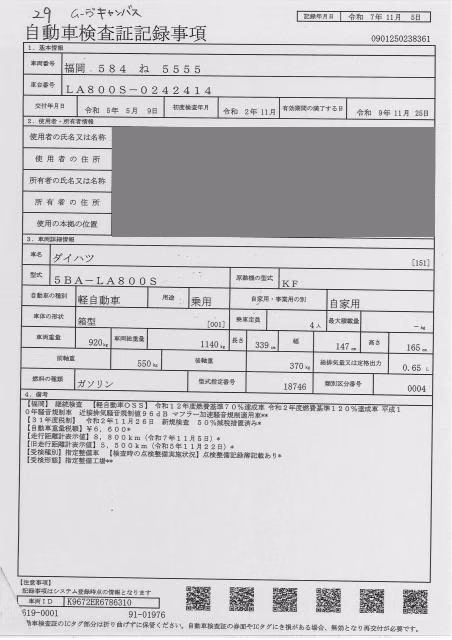 29 ムーヴキャンバス
記録年月日 令和 7年11月 5日
自動車検査証記録事項
0901250238361
1．基本情報
車両番号 福岡 584 ね 5555
車台番号 LA800S-0242414
交付年月日 令和 5年 5月 9日 初度検査年月 令和 2年11月 有効期間の満了する日 令和 9年11月 25日
2．使用者・所有者情報
使用者の氏名又は名称
使用者の住所
所有者の氏名又は名称
所有者の住所
使用の本拠の位置
3．車両詳細情報
車名 ダイハツ [151]
型式 5BA-LA800S 原動機の型式 KF
自動車の種別 軽自動車 用途 乗用 自家用・事業用の別 自家用
車体の形状 箱型 [001] 乗車定員 4人 最大積載量 -kg
車両重量 920kg 車両総重量 1140kg 長さ 339cm 幅 147cm 高さ 165cm
前軸重 550kg 後軸重 370kg 総排気量又は定格出力 0.65 L
燃料の種類 ガソリン 型式指定番号 18746 類別区分番号 0004
4．備考
【福岡】 継続検査 【軽自動車OSS】 令和12年度燃費基準70％達成車 令和2年度燃費基準120％達成車 平成1
0年騒音規制車 近接排気騒音規制値96dB マフラー加速騒音規制適用車**
【31年度税制】 令和2年11月26日 新規検査 50％減税措置済み*
【自動車重量税額】￥6,600*
【走行距離計表示値】8,800km（令和7年11月5日）*
【旧走行距離計表示値】5,500km（令和5年11月22日）*
【受検種別】指定整備車 【検査時の点検整備実施状況】点検整備記録簿記載あり*
【受検形態】指定整備工場**
【注意事項】
記録事項はシステム登録時点の情報となります
車両ID K9672ER6786310
619-0001 91-01976
自動車検査証のICタグ部分は折り曲げずに保管ください。自動車検査証の券面やICタグにき損がある場合、無効となり再交付が必要です。